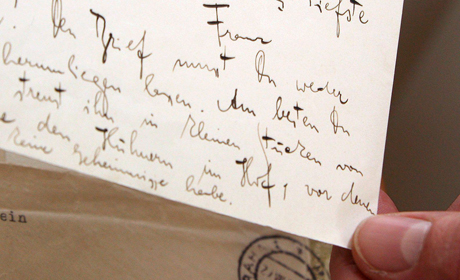 Liebste
Franz
Den Brief musst Du weder
herumliegen lassen. Am besten Du
streust ihn in kleinen Stücken von
den Hühnern im Hof, vor denen
keine Geheimnisse habe.
ein